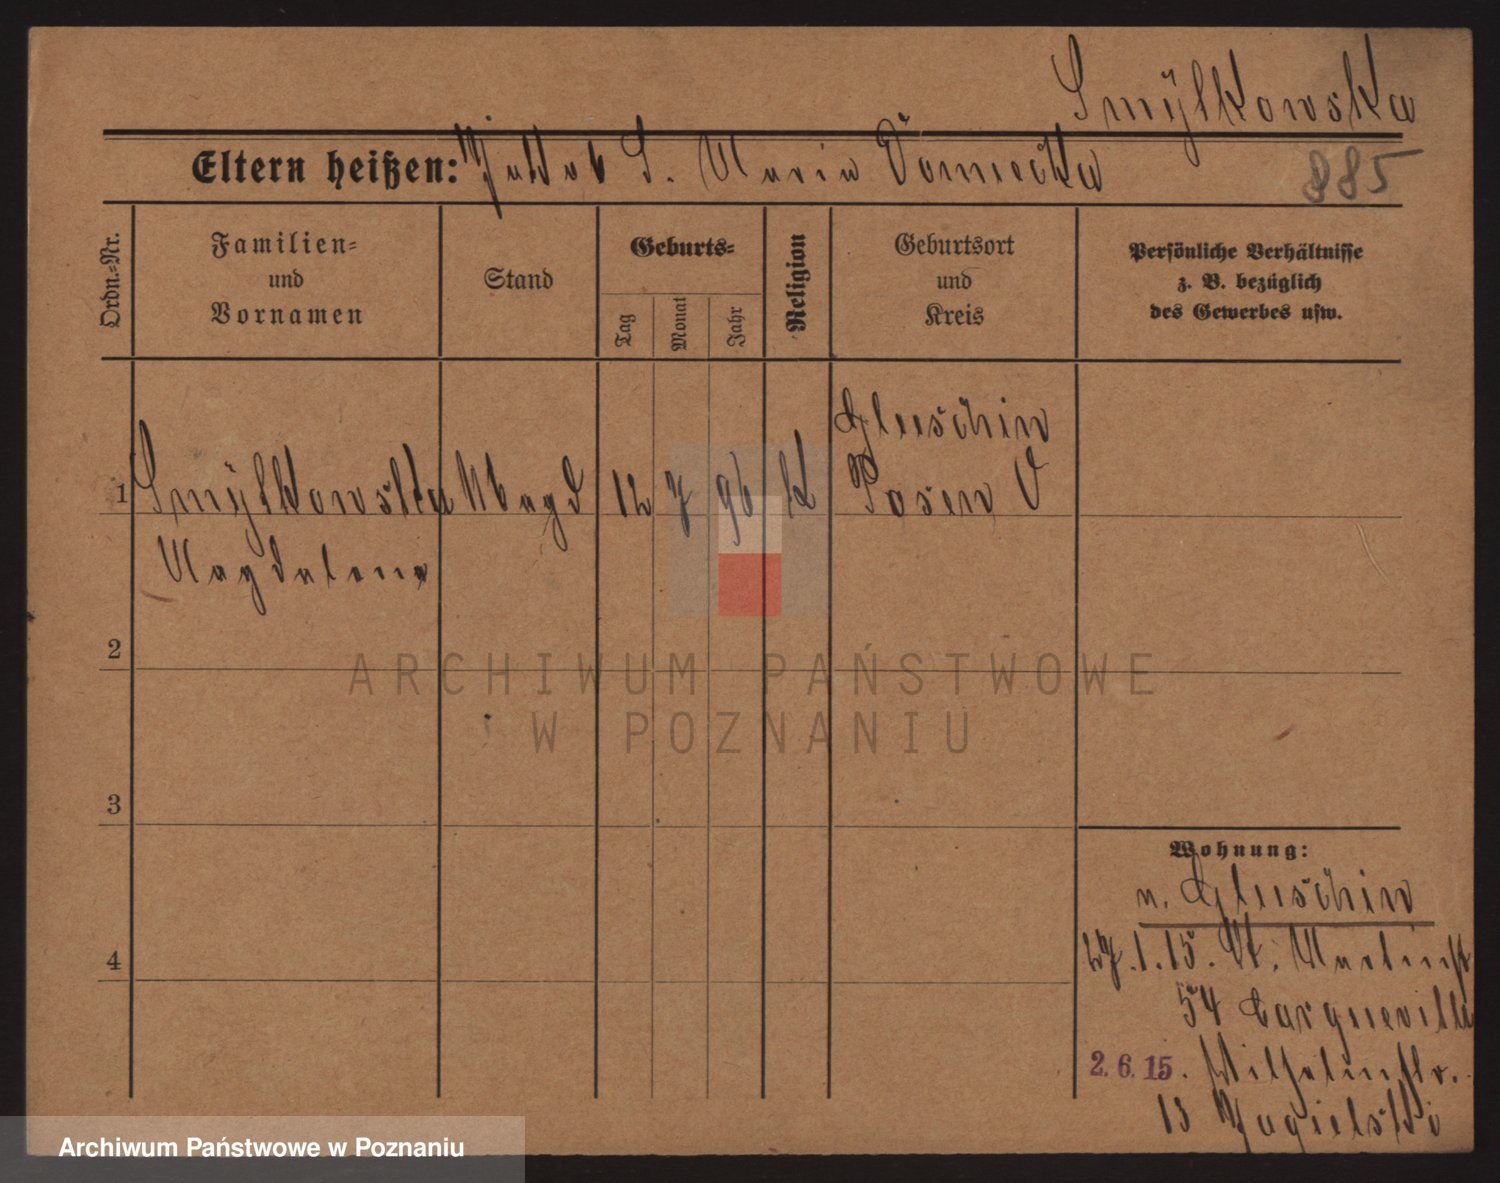 Smÿlkowska
Eltern heißen: Jakob S. Maria Domiecka
885
Ordn.-Nr.
Familien-
und
Vornamen
Stand
Geburts-
Tag
Monat
Jahr
Religion
Geburtsort
und
Kreis
Persönliche Verhältnisse
z. B. bezüglich
des Gewerbes usw.
Gluschin
1 Smÿlkowska Magd 12 7 96 k Posen O
Magdalena
2
ARCHIWUM PAŃSTWOWE
W POZNANIU
3
Wohnung:
n. Gluschin
4
27.1.15. St. Martinst
54
2.6.15. Wilhelmstr.
13 Jagielski
Archiwum Państwowe w Poznaniu